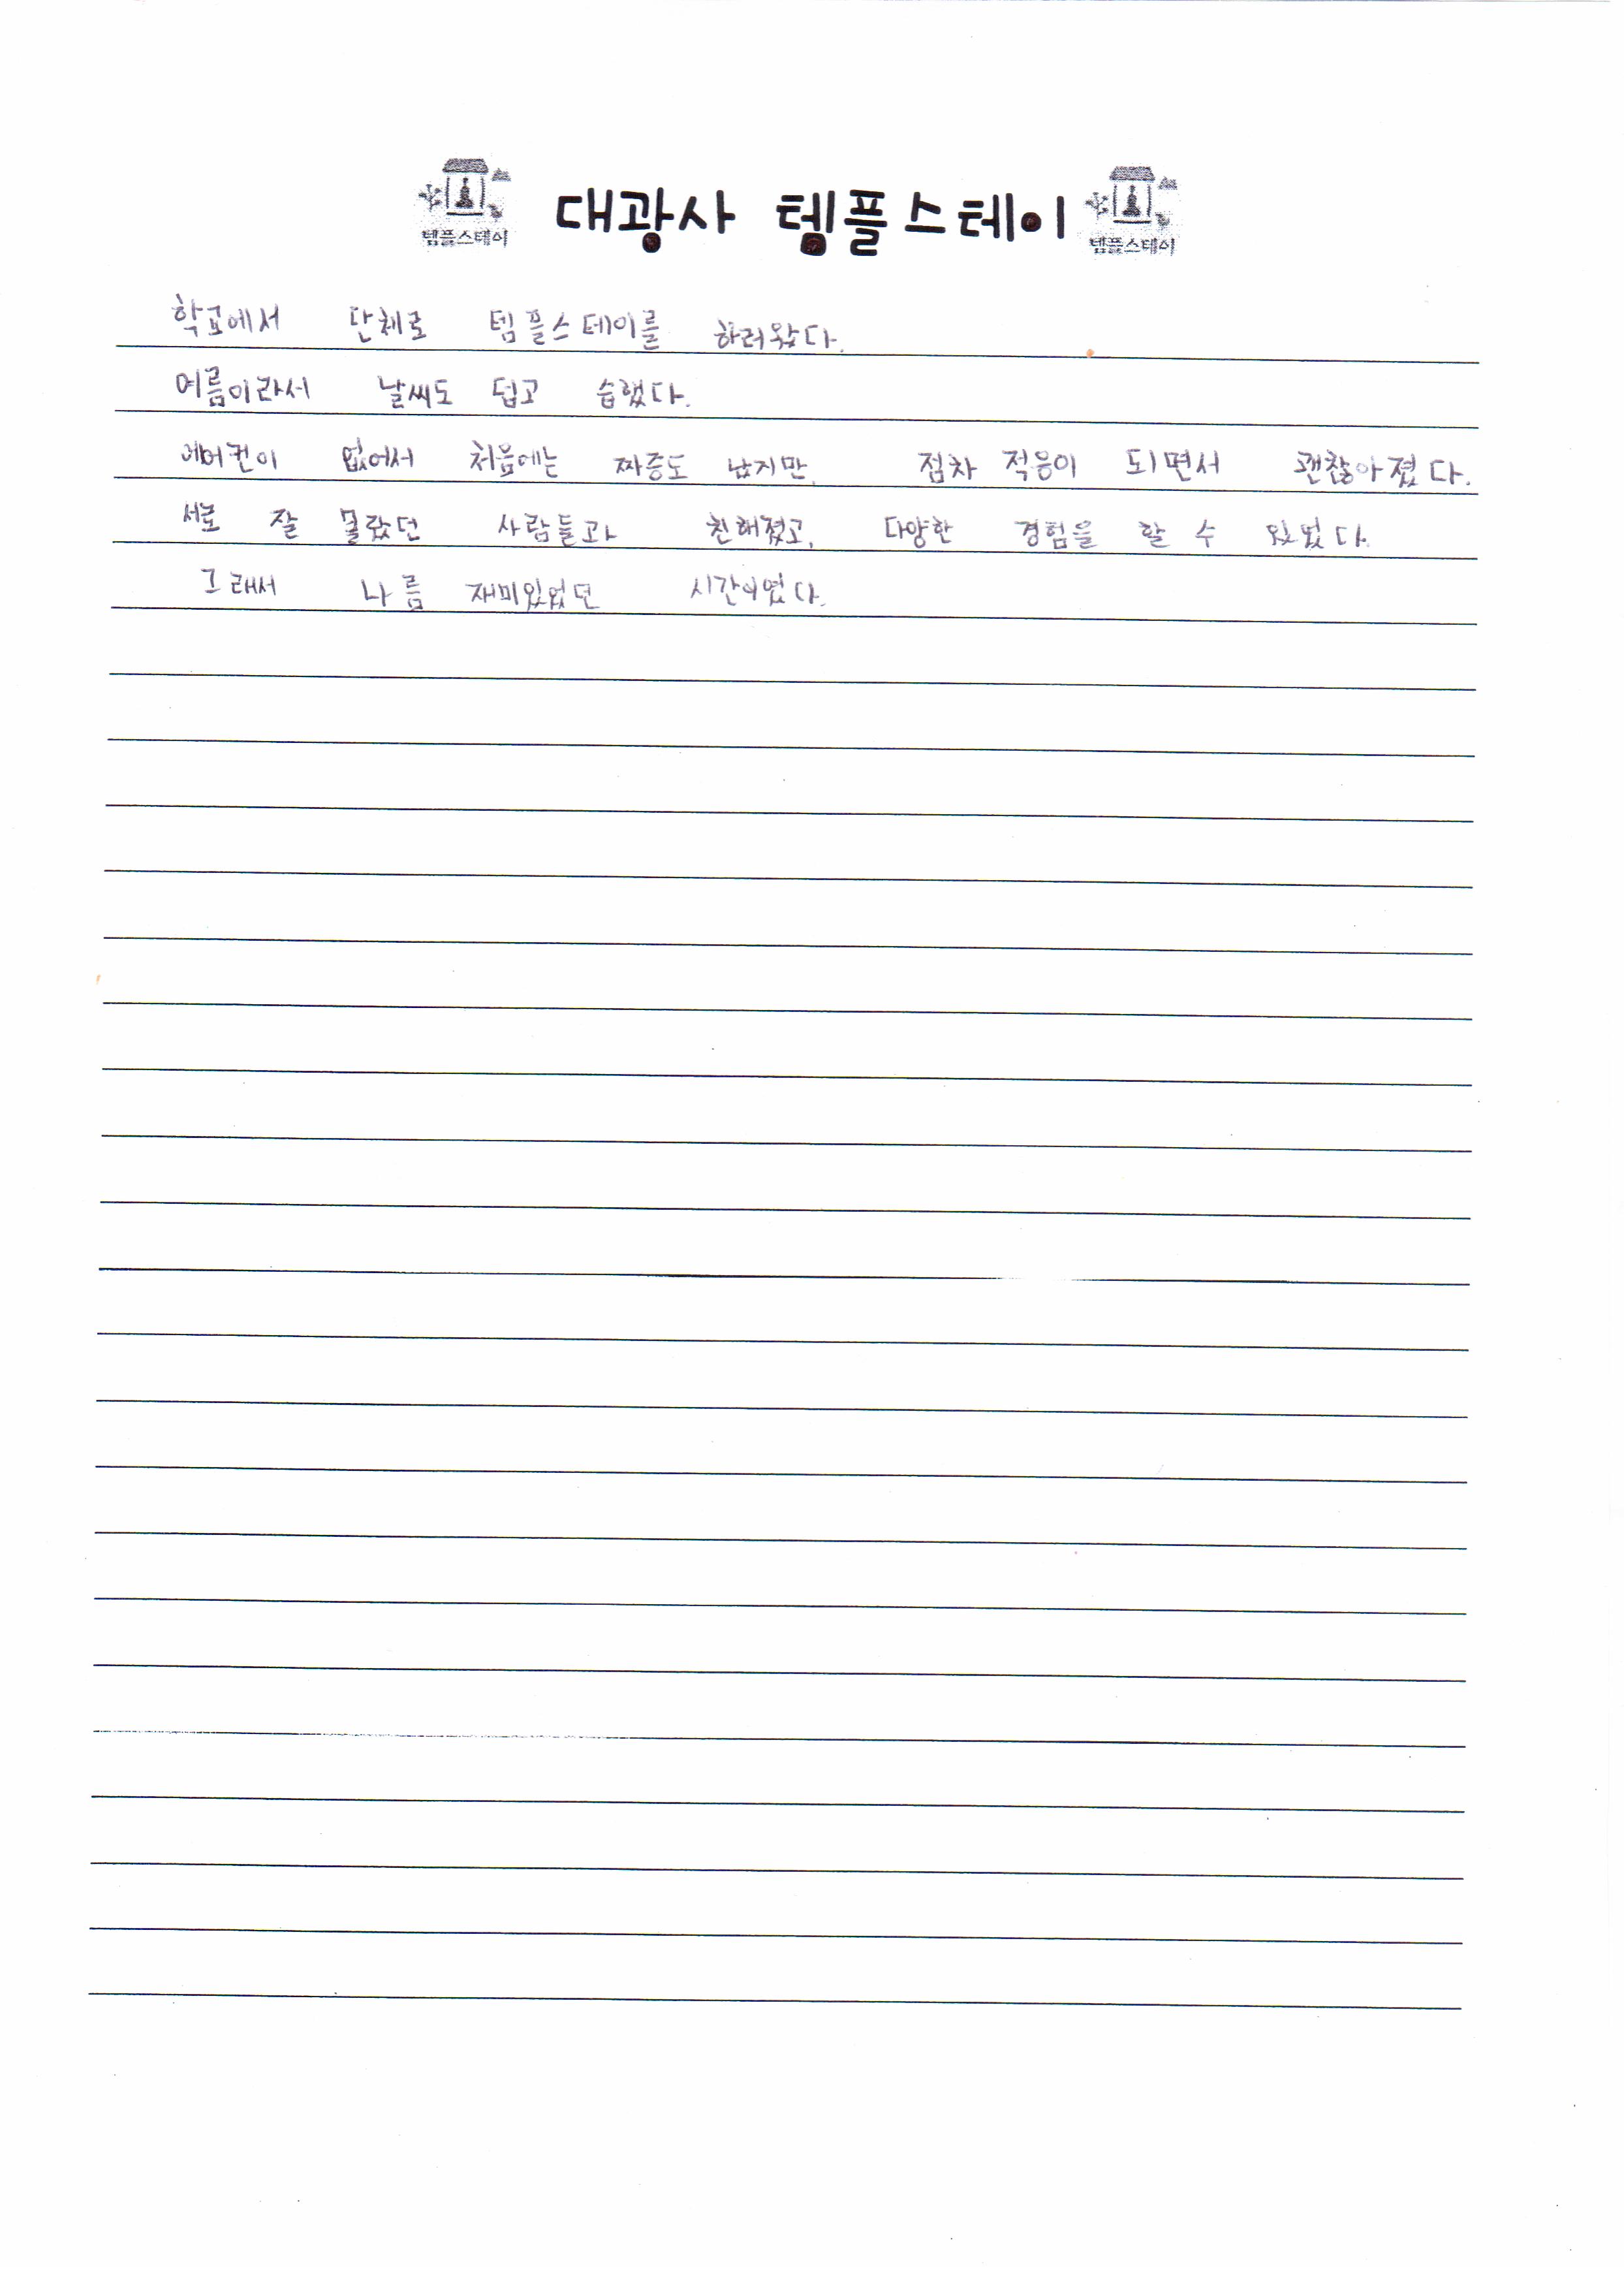 대광사 템플스테이
템플스테이 템플스테이
학교에서 단체로 템플스테이를 하러왔다.
여름이라서 날씨도 덥고 습했다.
에어컨이 없어서 처음에는 짜증도 났지만, 점차 적응이 되면서 괜찮아졌다.
서로 잘 몰랐던 사람들과 친해졌고, 다양한 경험을 할 수 있었다.
그래서 나름 재미있었던 시간이였다.